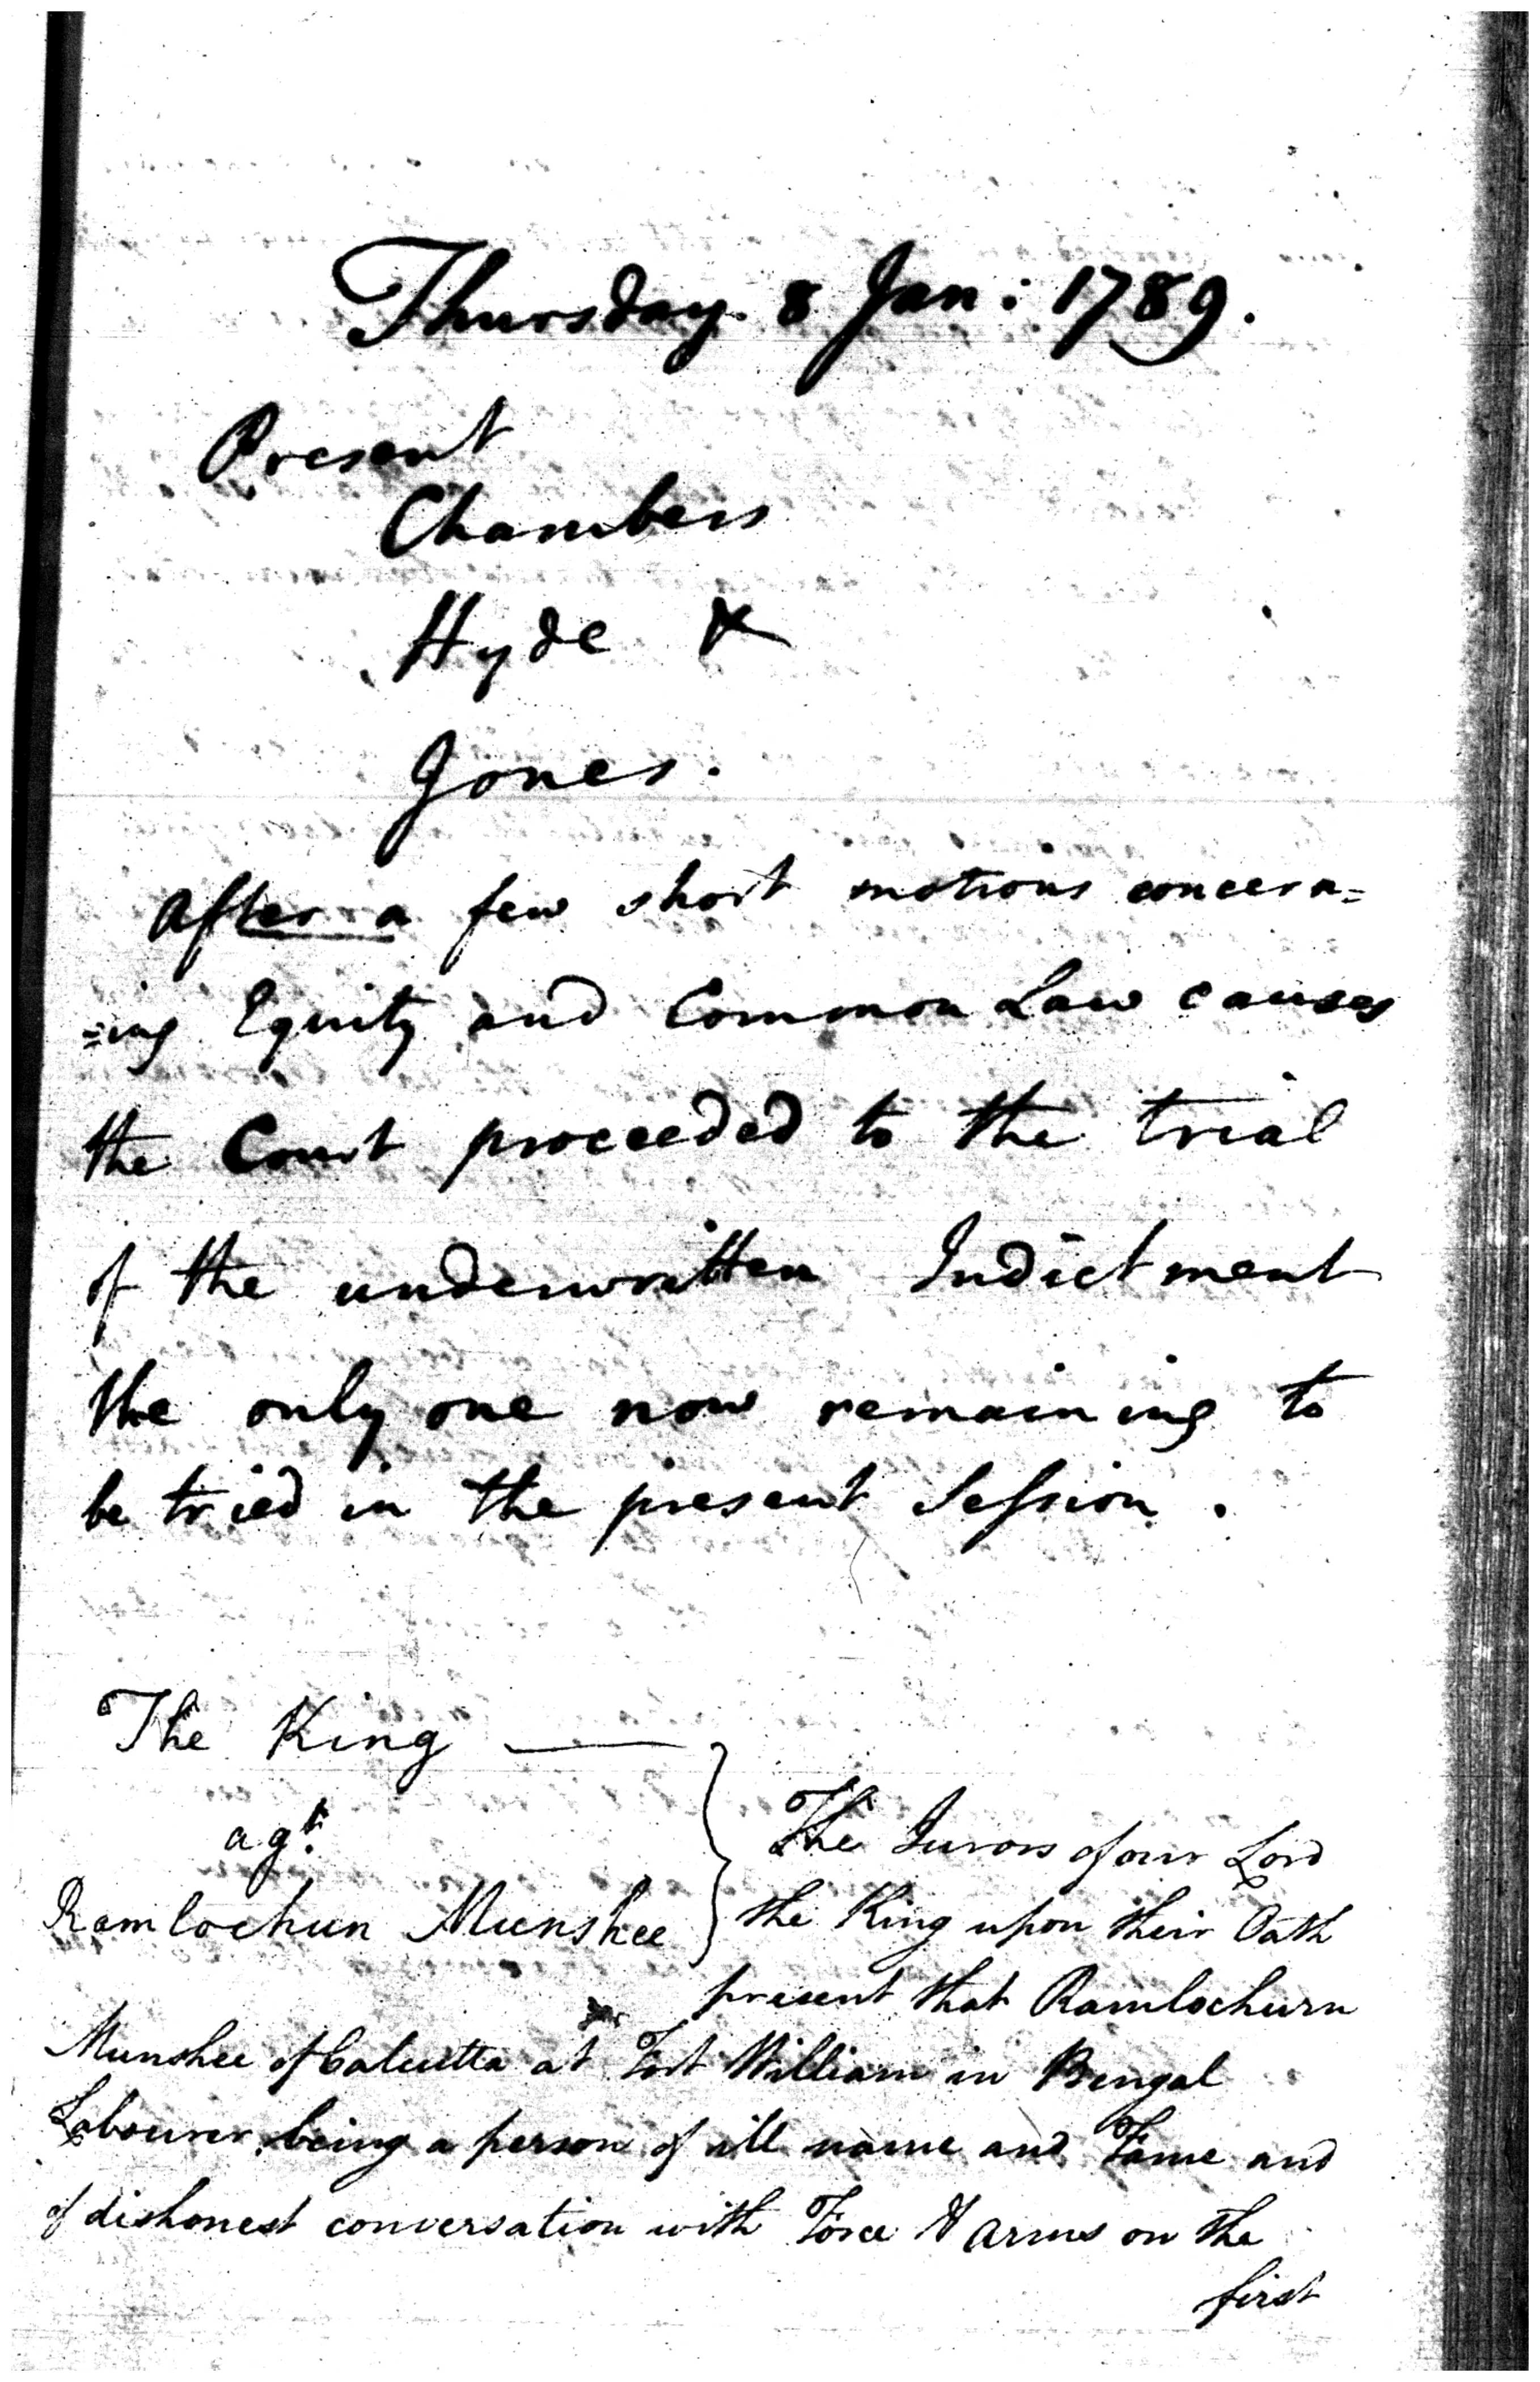 Thursday. 8 Jan: 1789.
Present
Chambers
Hyde &
Jones.
After a few short motions concern=
=ing Equity and Common Law causes
the Court proceeded to the trial
of the underwritten Indictment
the only one now remaining to
be tried in the present Session.
The King
agt.
Ramlochun Munshee
The Jurors of our Lord
the King upon their Oath
present that Ramlochurn
Munshee of Calcutta at Fort William in Bengal
Labourer being a person of ill name and Fame and
of dishonest conversation with Force & Arms on the
first